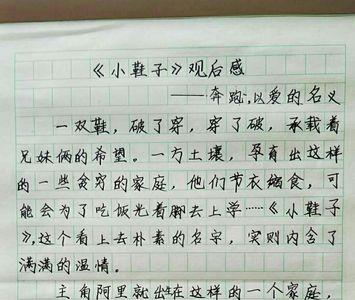 《小鞋子》观后感
——奔跑,以爱的名义
一双鞋，破了穿，穿了破，承载着
兄妹俩的希望。一方土壤，孕育出这样
的一些贫穷的家庭，他们节衣缩食，可
能会为了吃饭光着脚去上学……《小鞋子
》，这个看上去朴素的名字，实则内含了
满满的温情。
主角阿里就出生在这样的一个家庭，